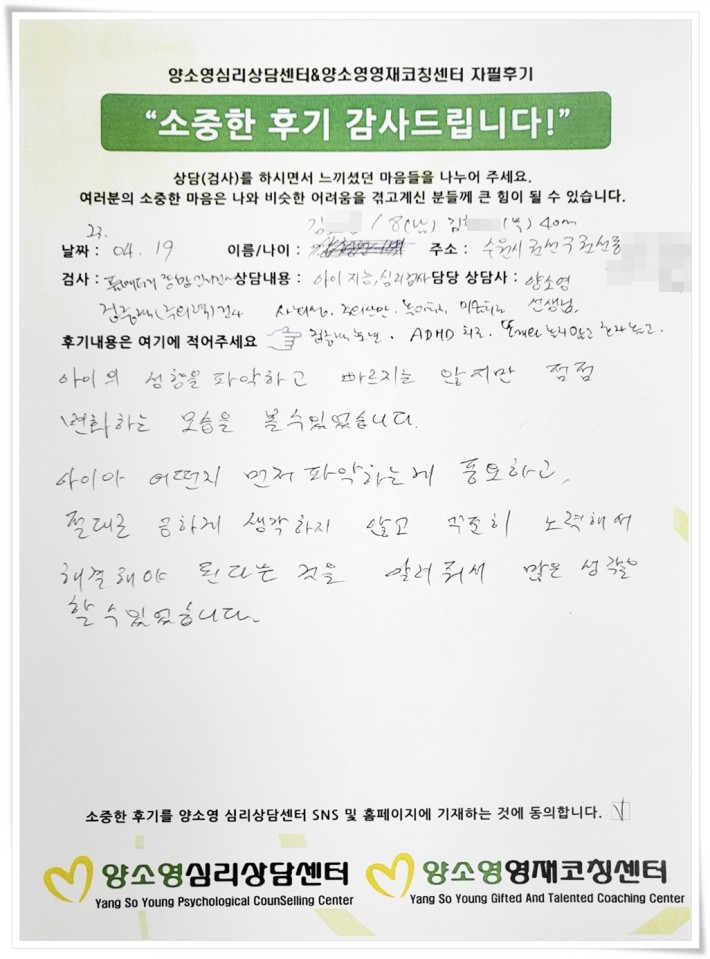 양소영심리상담센터&양소영영재코칭센터 자필후기
“소중한 후기 감사드립니다!”
상담(검사)를 하시면서 느끼셨던 마음들을 나누어 주세요.
여러분의 소중한 마음은 나와 비슷한 어려움을 겪고계신 분들께 큰 힘이 될 수 있습니다.
23. 김 / 8(남) 김 (부) 40m
날짜 : 04. 19 이름/나이 : 주소 : 수원시 권선구 권선동
검사 : 종합 상담내용 : 아이 지능, 심리검사 담당 상담사 : 양소영
집중력(주의력)검사 사회성, 주의산만, 선생님,
후기내용은 여기에 적어주세요 집중력 . ADHD 치료.
아이의 성향을 파악하고 빠르지는 않지만 점점
변화하는 모습을 볼수있었습니다.
아이가 어떤지 먼저 파악하는게 중요하고,
절대로 급하게 생각하지 않고 꾸준히 노력해서
해결해야 된다는 것을 알려줘서 많은 생각을
할 수 있었습니다.
소중한 후기를 양소영 심리상담센터 SNS 및 홈페이지에 기재하는 것에 동의합니다. V
양소영심리상담센터 양소영영재코칭센터
Yang So Young Psychological CounSelling Center Yang So Young Gifted And Talented Coaching Center